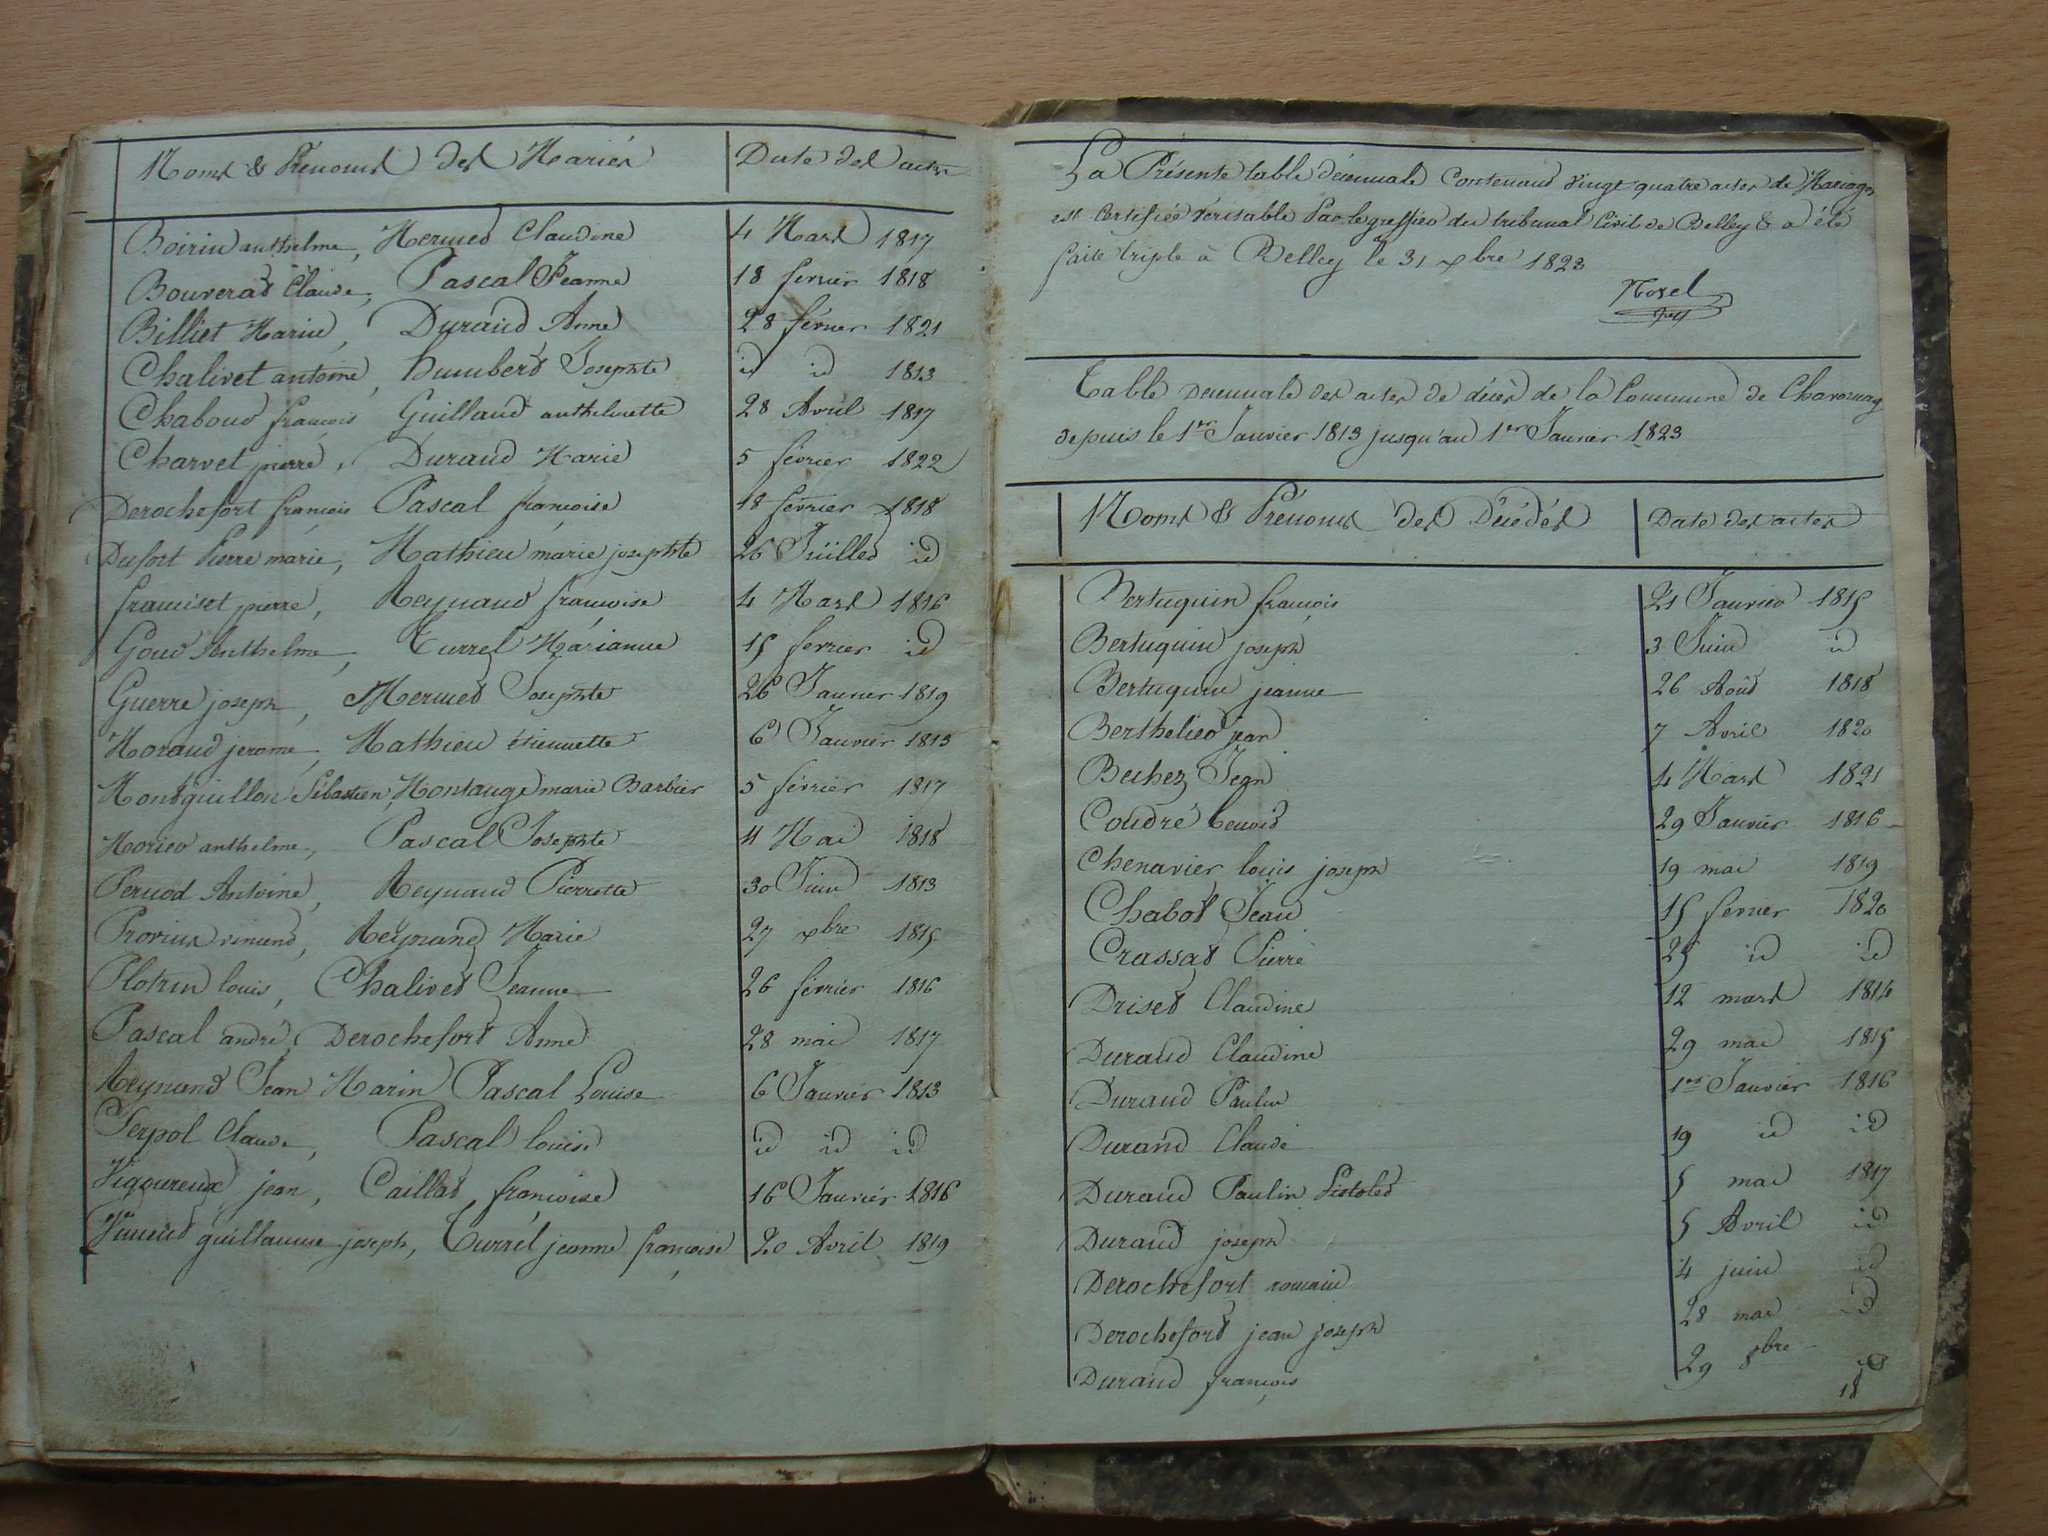 Noms & Prénoms des Mariés Date des actes
Boirin anthelme, Mermet Claudine 4 Mars 1817
Bouverat Claude, Pascal Jeanne 18 fevrier 1818
Billiet Marin, Durand Anne 28 février 1821
Chalivet antoine, Humbert Josephte id id 1813
Chaboud françois Guilland anthelmette 28 Avril 1817
Charvet pierre, Durand Marie 5 février 1822
Derochefort françois Pascal françoise 18 février 1818
Dufort Pierre marie, Mathieu marie josephte 26 Juillet id
franciset pierre, Reynaud françoise 4 Mars 1816
Goud Anthelme, Turrel Marianne 15 fevrier id
Guerre joseph, Mermet Josephte 26 Janvier 1819
Morand jerome, Mathieu étiennette 6 Janvier 1813
Montguillon Sébastien, Montange marie Barbier 5 février 1817
Morier anthelme, Pascal Josephte 4 Mai 1818
Pernod Antoine, Reynaud Pierrette 30 Juin 1813
vincent, Reynand Marie 27 xbre 1815
Plotrin louis, Chalivet Jeanne 26 février 1816
Pascal andré, Derochefort Anne 28 mai 1817
Reynand Jean Marin Pascal Louise 6 Janvier 1813
Serpol Claude, Pascal louise id id id
Vigoureux jean, Caillat françoise 16 Janvier 1816
guillaume joseph, Turrel jeanne françoise 20 Avril 1819
La Présente table décennale Contenant vingt quatre actes de Mariages
est Certifiée véritable Par le greffier du tribunal Civil de Belley & a été
faite triple à Belley le 31 xbre 1823
Table Decennale des actes de décès de la Commune de Chavornay
depuis le 1er Janvier 1813 jusqu'au 1er Janvier 1823
Noms & Prénoms des Décédés Date des actes
Bertuquin françois 21 Janvier 1815
Bertuquin joseph 3 Juin id
Bertuquin jeanne 26 Août 1818
Berthelier jean 7 Avril 1820
Bechez Jean 4 Mars 1821
Coudré benoit 29 Janvier 1816
Chenavier louis joseph 19 mai 1819
Chabot Jean 15 fevrier 1820
Crassat Pierre 25 id id
Driset Claudine 12 mars 1814
Durand Claudine 29 mai 1815
Durand Paulin 1er Janvier 1816
Durand Claude 19 id id
Durand Paulin Pistolet 5 mai 1817
Durand joseph 5 Avril id
Derochefort romain 4 juin id
Derochefort jean joseph 28 mai id
Durand françois 29 8bre
18